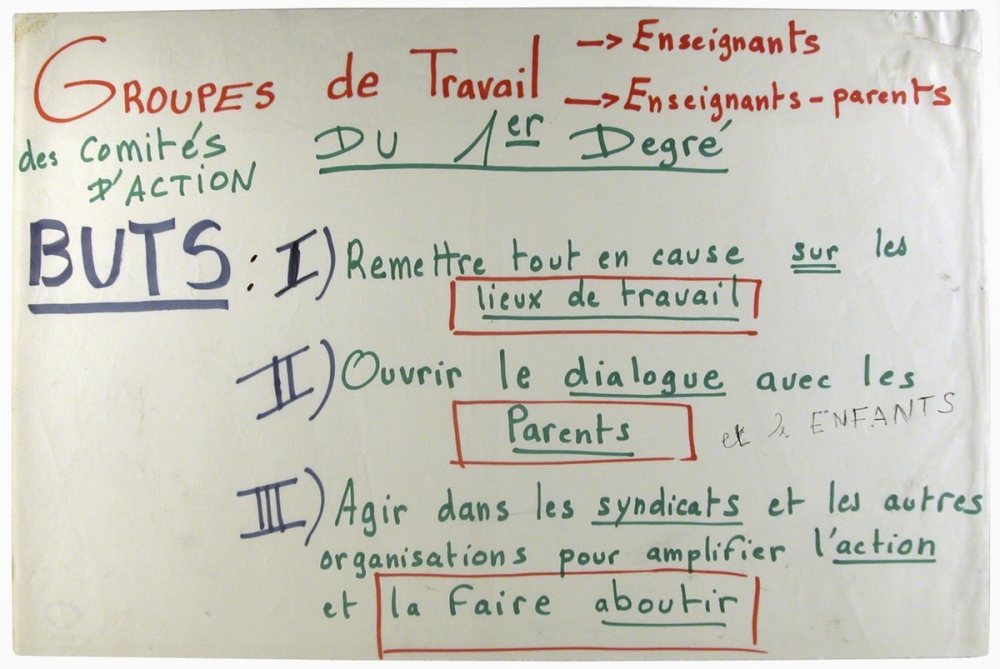 GROUPES de Travail → Enseignants
→ Enseignants - parents
des comités D'ACTION
DU 1er Degré
BUTS : I) Remettre tout en cause sur les
lieux de travail
II) Ouvrir le dialogue avec les
Parents et ENFANTS
III) Agir dans les syndicats et les autres
organisations pour amplifier l'action
et la faire aboutir